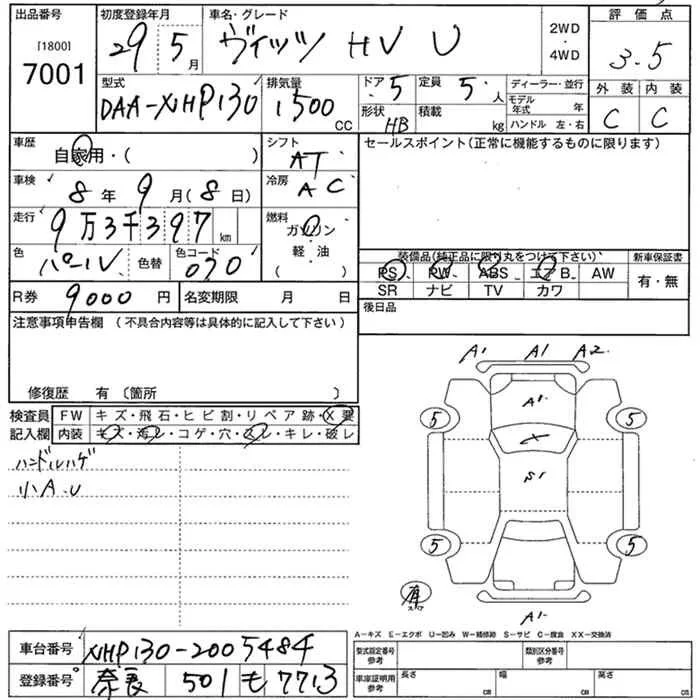 出品番号
[1800]
7001
初度登録年月
29 5月
車名・グレード
ヴィッツ HV U
2WD
・
4WD
評価点
3.5
外装 内装
C C
型式
DAA-NHP130
排気量
1500 CC
ドア 5
定員 5人
形状 HB
積載 kg
ディーラー・並行
モデル年式 年
ハンドル 左・右
車歴
自家用・( )
シフト
AT
セールスポイント(正常に機能するものに限ります)
車検
8年 9月(8日)
冷房
AC
走行
9万3千397km
燃料
ガソリン
・
軽・油
( )
色
パール
色替
色コード
070
装備品(純正品に限り丸をつけて下さい)
新車保証書
PS PW ABS エアB. AW
有・無
SR ナビ TV カワ
R券 9000円
名変期限 月 日
後日品
注意事項申告欄 (不具合内容等は具体的に記入して下さい)
修復歴 有 〔箇所 〕
検査員
記入欄
FW キズ・飛石・ヒビ割・リペア跡・X要
内装 キズ・汚レ・コゲ・穴・スレ・キレ・破レ
ハンドルハゲ
小A.U
A1 A1 A2
A1
5 5
X
S1
5 5
有
スペア
A1
A-キズ E-エクボ U-凹み W-補修跡 S-サビ C-腐食 XX-交換済
車台番号 NHP130-2005484
登録番号 奈良 501 も 7713
型式指定番号
参考
類別区分番号
参考
車庫証明用
参考
長さ cm
幅 cm
高さ cm